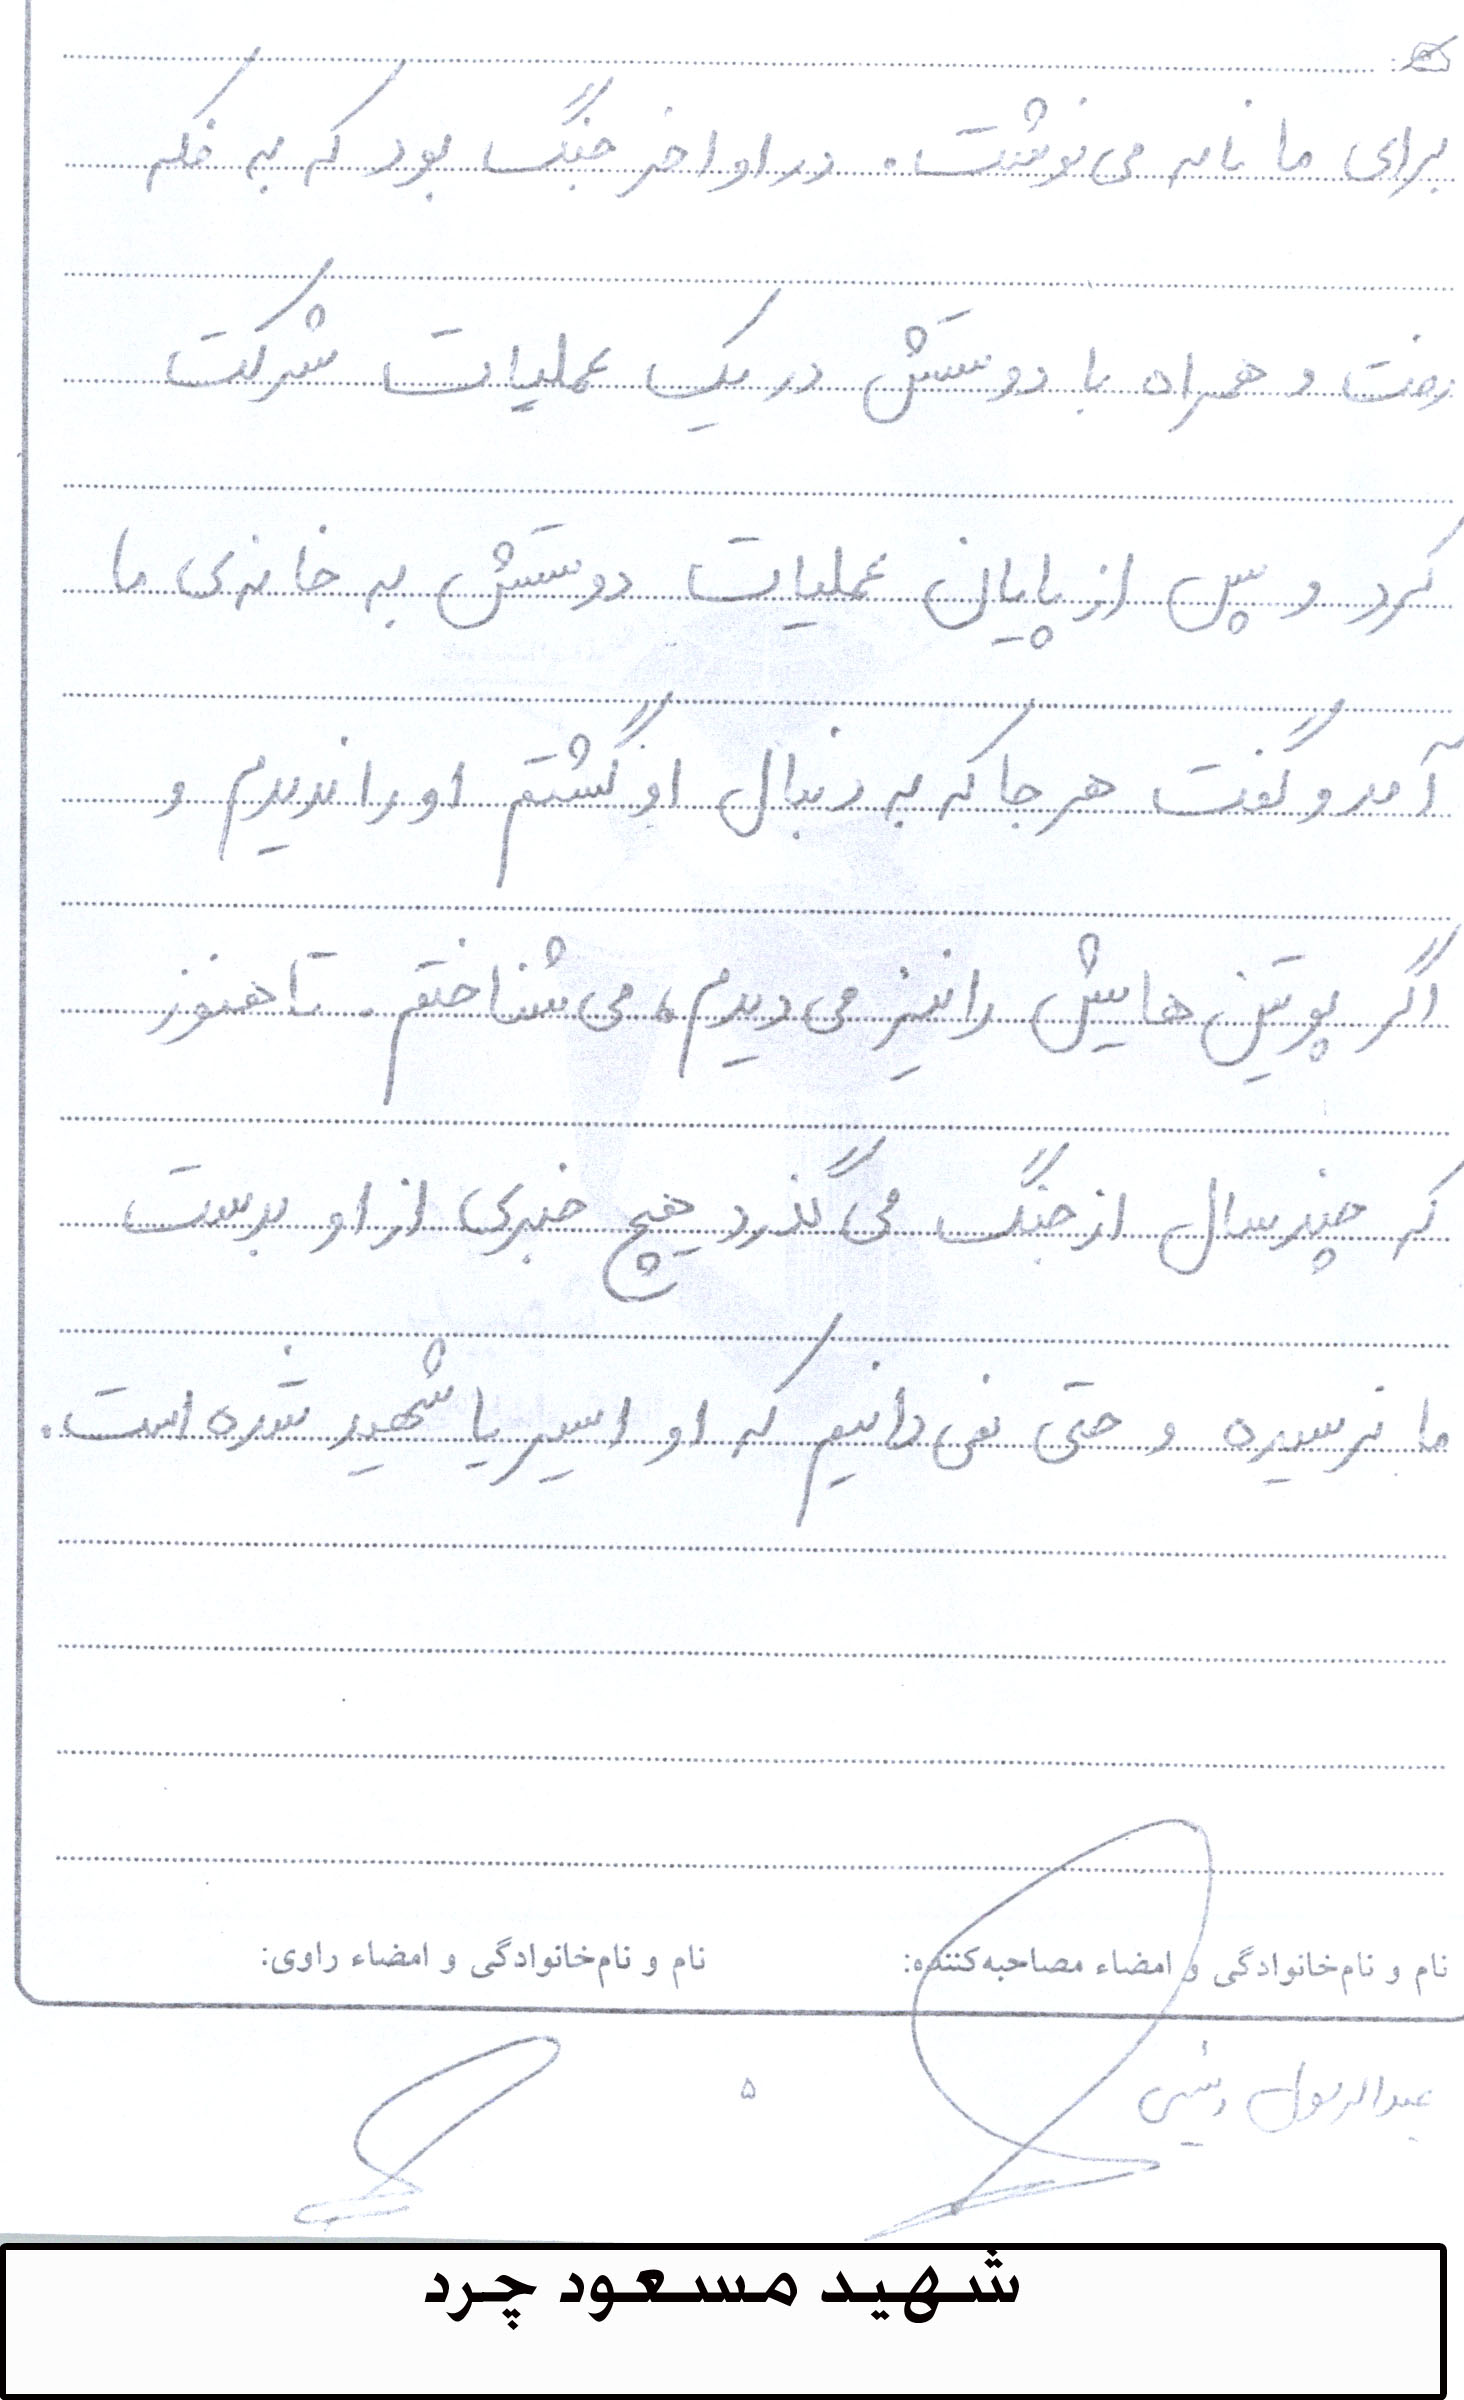 برای ما نامه می نوشت. در اواخر جنگ بود که به فکه
رفت و همراه با دوستش در یک عملیات شرکت
کرد و پس از پایان عملیات دوستش به خانه‌ی ما
آمد و گفت هر جا که به دنبال او گشتم او را ندیدم و
اگر پوتین هایش را نیز می دیدم، می شناختم. تا هنوز
که چند سال از جنگ می گذرد هیچ خبری از او بدست
ما نرسیده و حتی نمی دانیم که او اسیر یا شهید شده است.
نام و نام‌خانوادگی و امضاء مصاحبه‌کننده: نام و نام‌خانوادگی و امضاء راوی:
عبدالرسول
۵
شهید مسعود چرد